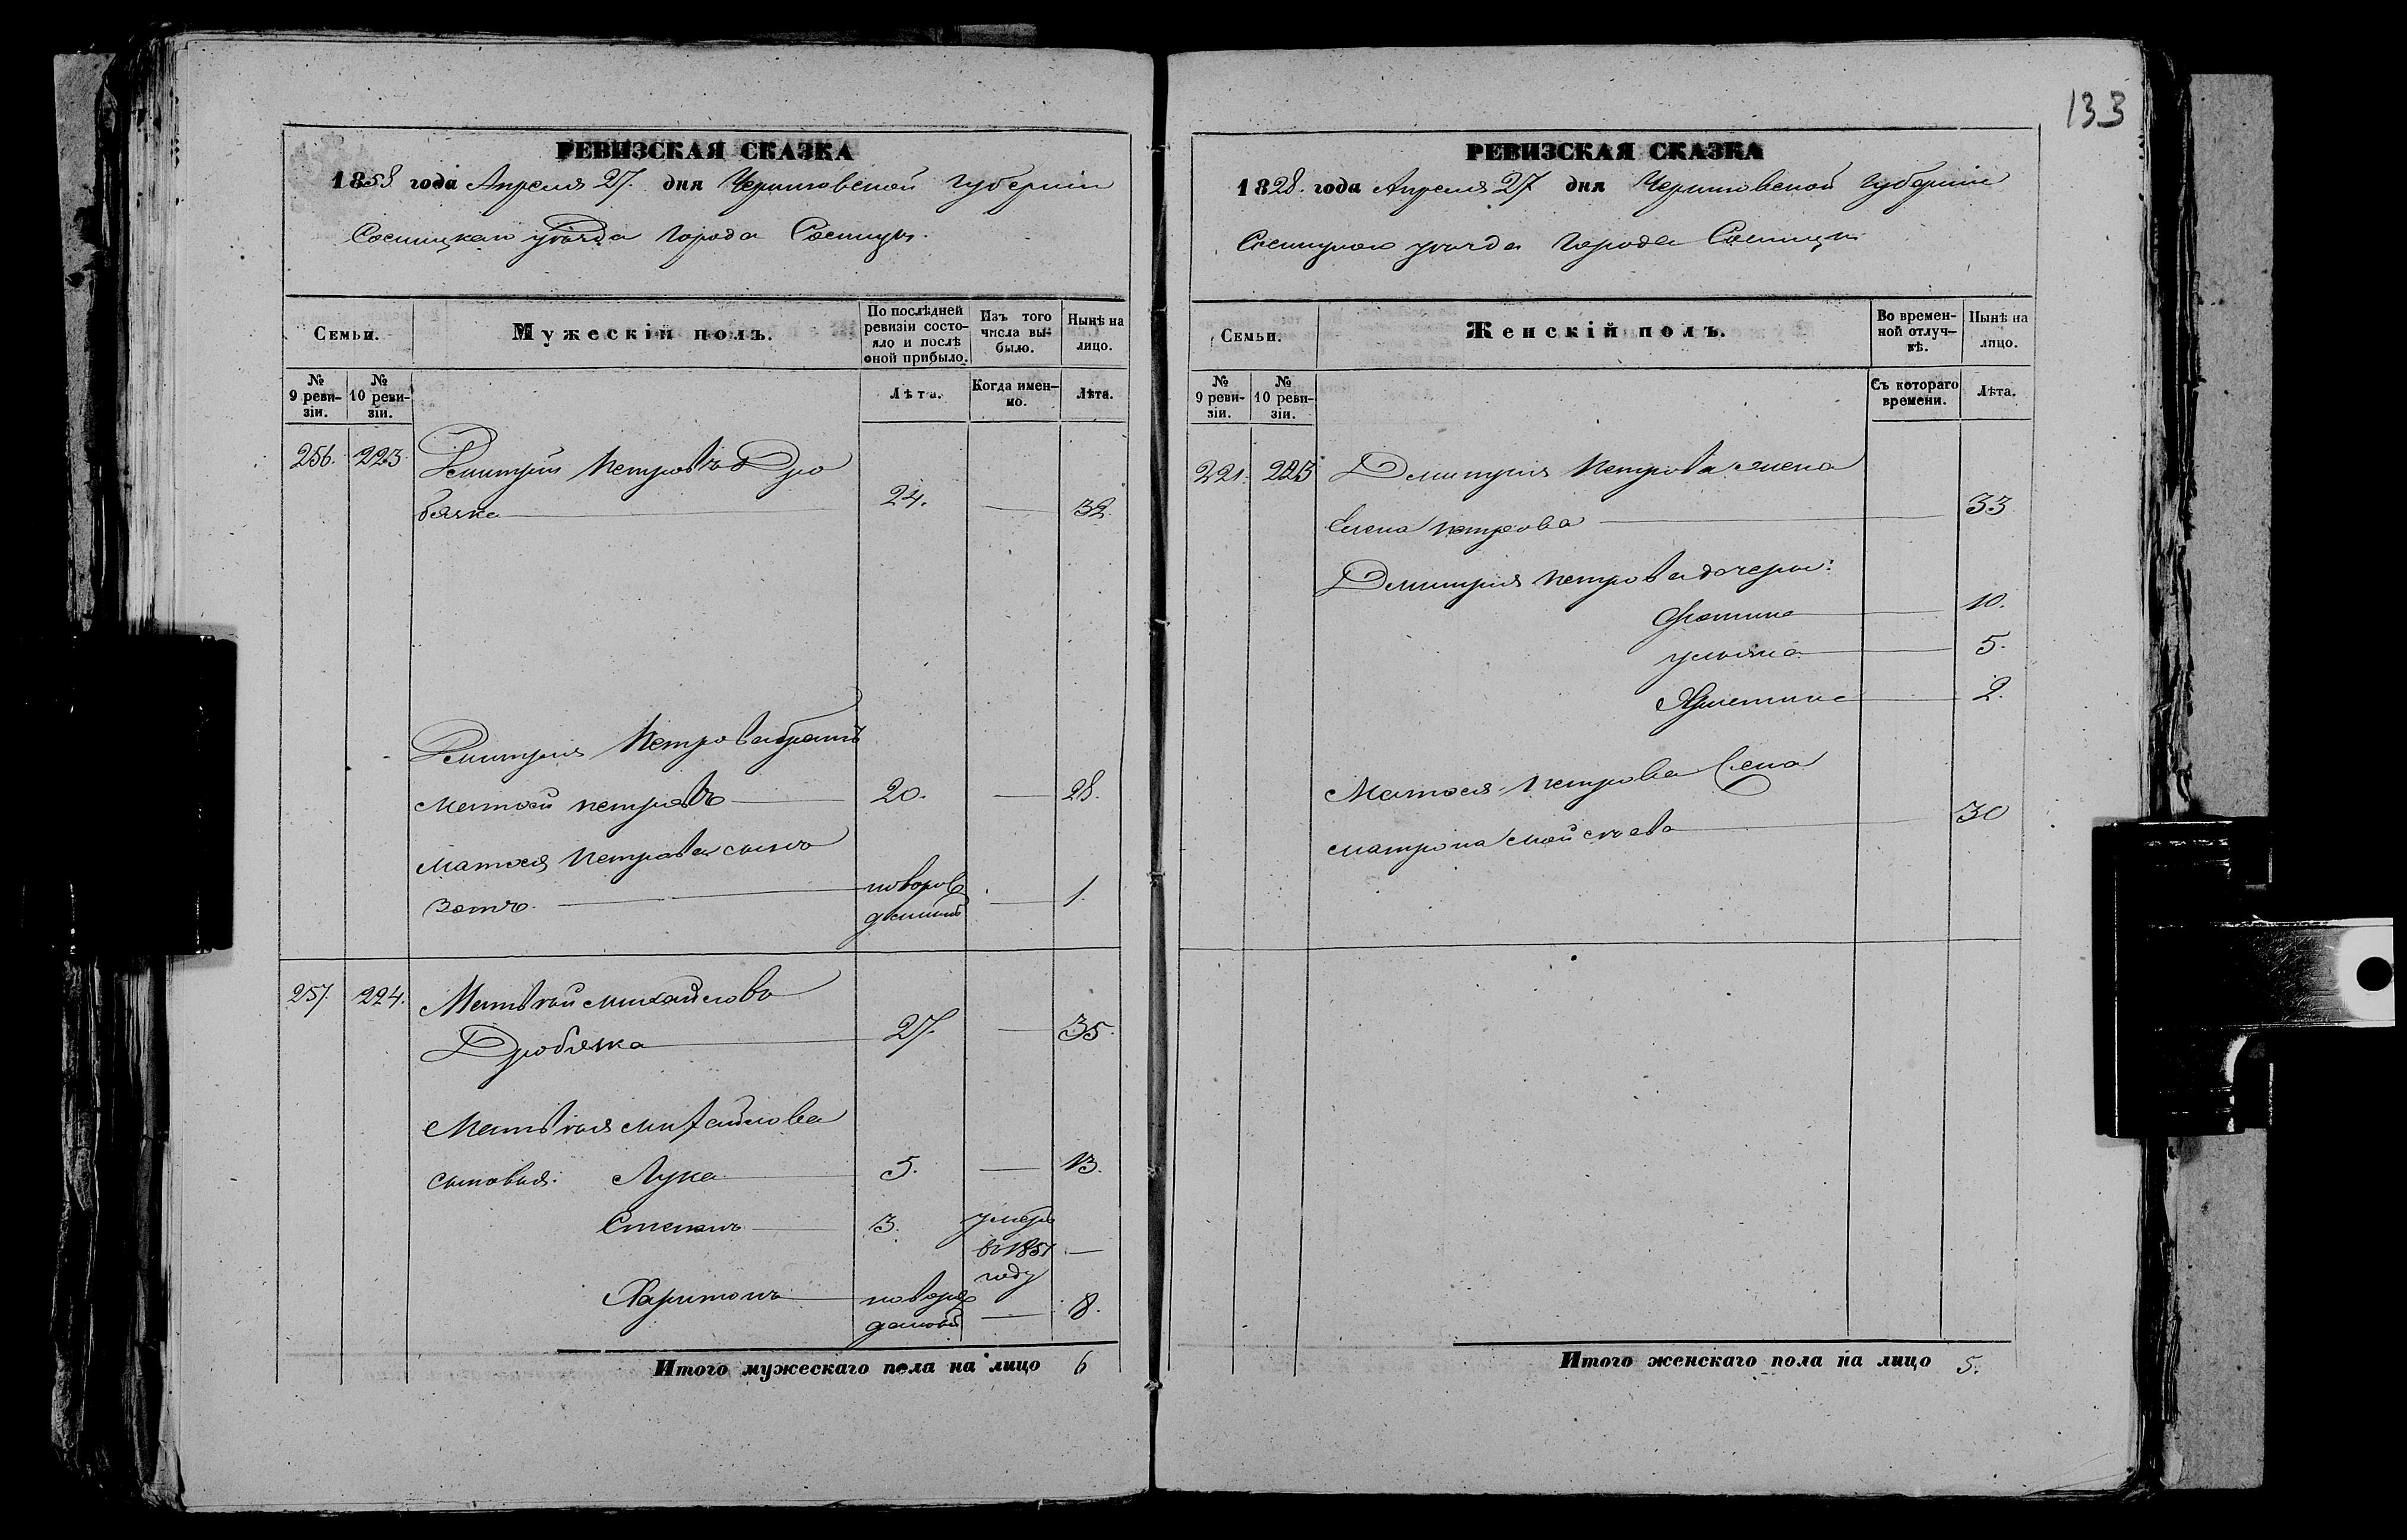 133
РЕВИЗСКАЯ СКАЗКА
1858 года Апреля 27. дня Черниговской губернии
Сосницкаго уѣзда города Сосницы.
Семьи.
Мужескій полъ.
По послѣдней ревизіи состояло и послѣ оной прибыло.
Изъ того числа выбыло.
Нынѣ на лицо.
№ 9 ревизіи.
№ 10 ревизіи.
Лѣта.
Когда именно.
Лѣта.
256. 223 Дмитрій Петровъ Дро
бязка 24. — 32.
Дмитрія Петрова братъ
Матвей Петровъ 20. — 28.
Матвея Петрова сынъ
Зотъ. новорож
денный — 1.
257. 224. Матвѣй Михайловъ
Дробязка 27. — 35.
Матвѣя Михайлова
сыновья: Лука 5. — 13.
Степанъ 3. умеръ
въ 1851 —
году
Харитонъ новорож
денный — 8.
Итого мужескаго пола на лицо 6
РЕВИЗСКАЯ СКАЗКА
1828. года Апреля 27 дня Черниговской Губернии
Сосницкаго уѣзда города Сосницы
Семьи.
Женскій полъ.
Во временной отлучкѣ.
Нынѣ на лицо.
№ 9 ревизіи.
№ 10 ревизіи.
Съ котораго времени.
Лѣта.
221. 223 Дмитрія Петрова жена
Елена Петрова 33
Дмитрія Петрова дочери:
Фотина 10.
Ульяна 5.
Христина 2.
Матвея Петрова жена
Матрона Моисеева 30
Итого женскаго пола на лицо 5.